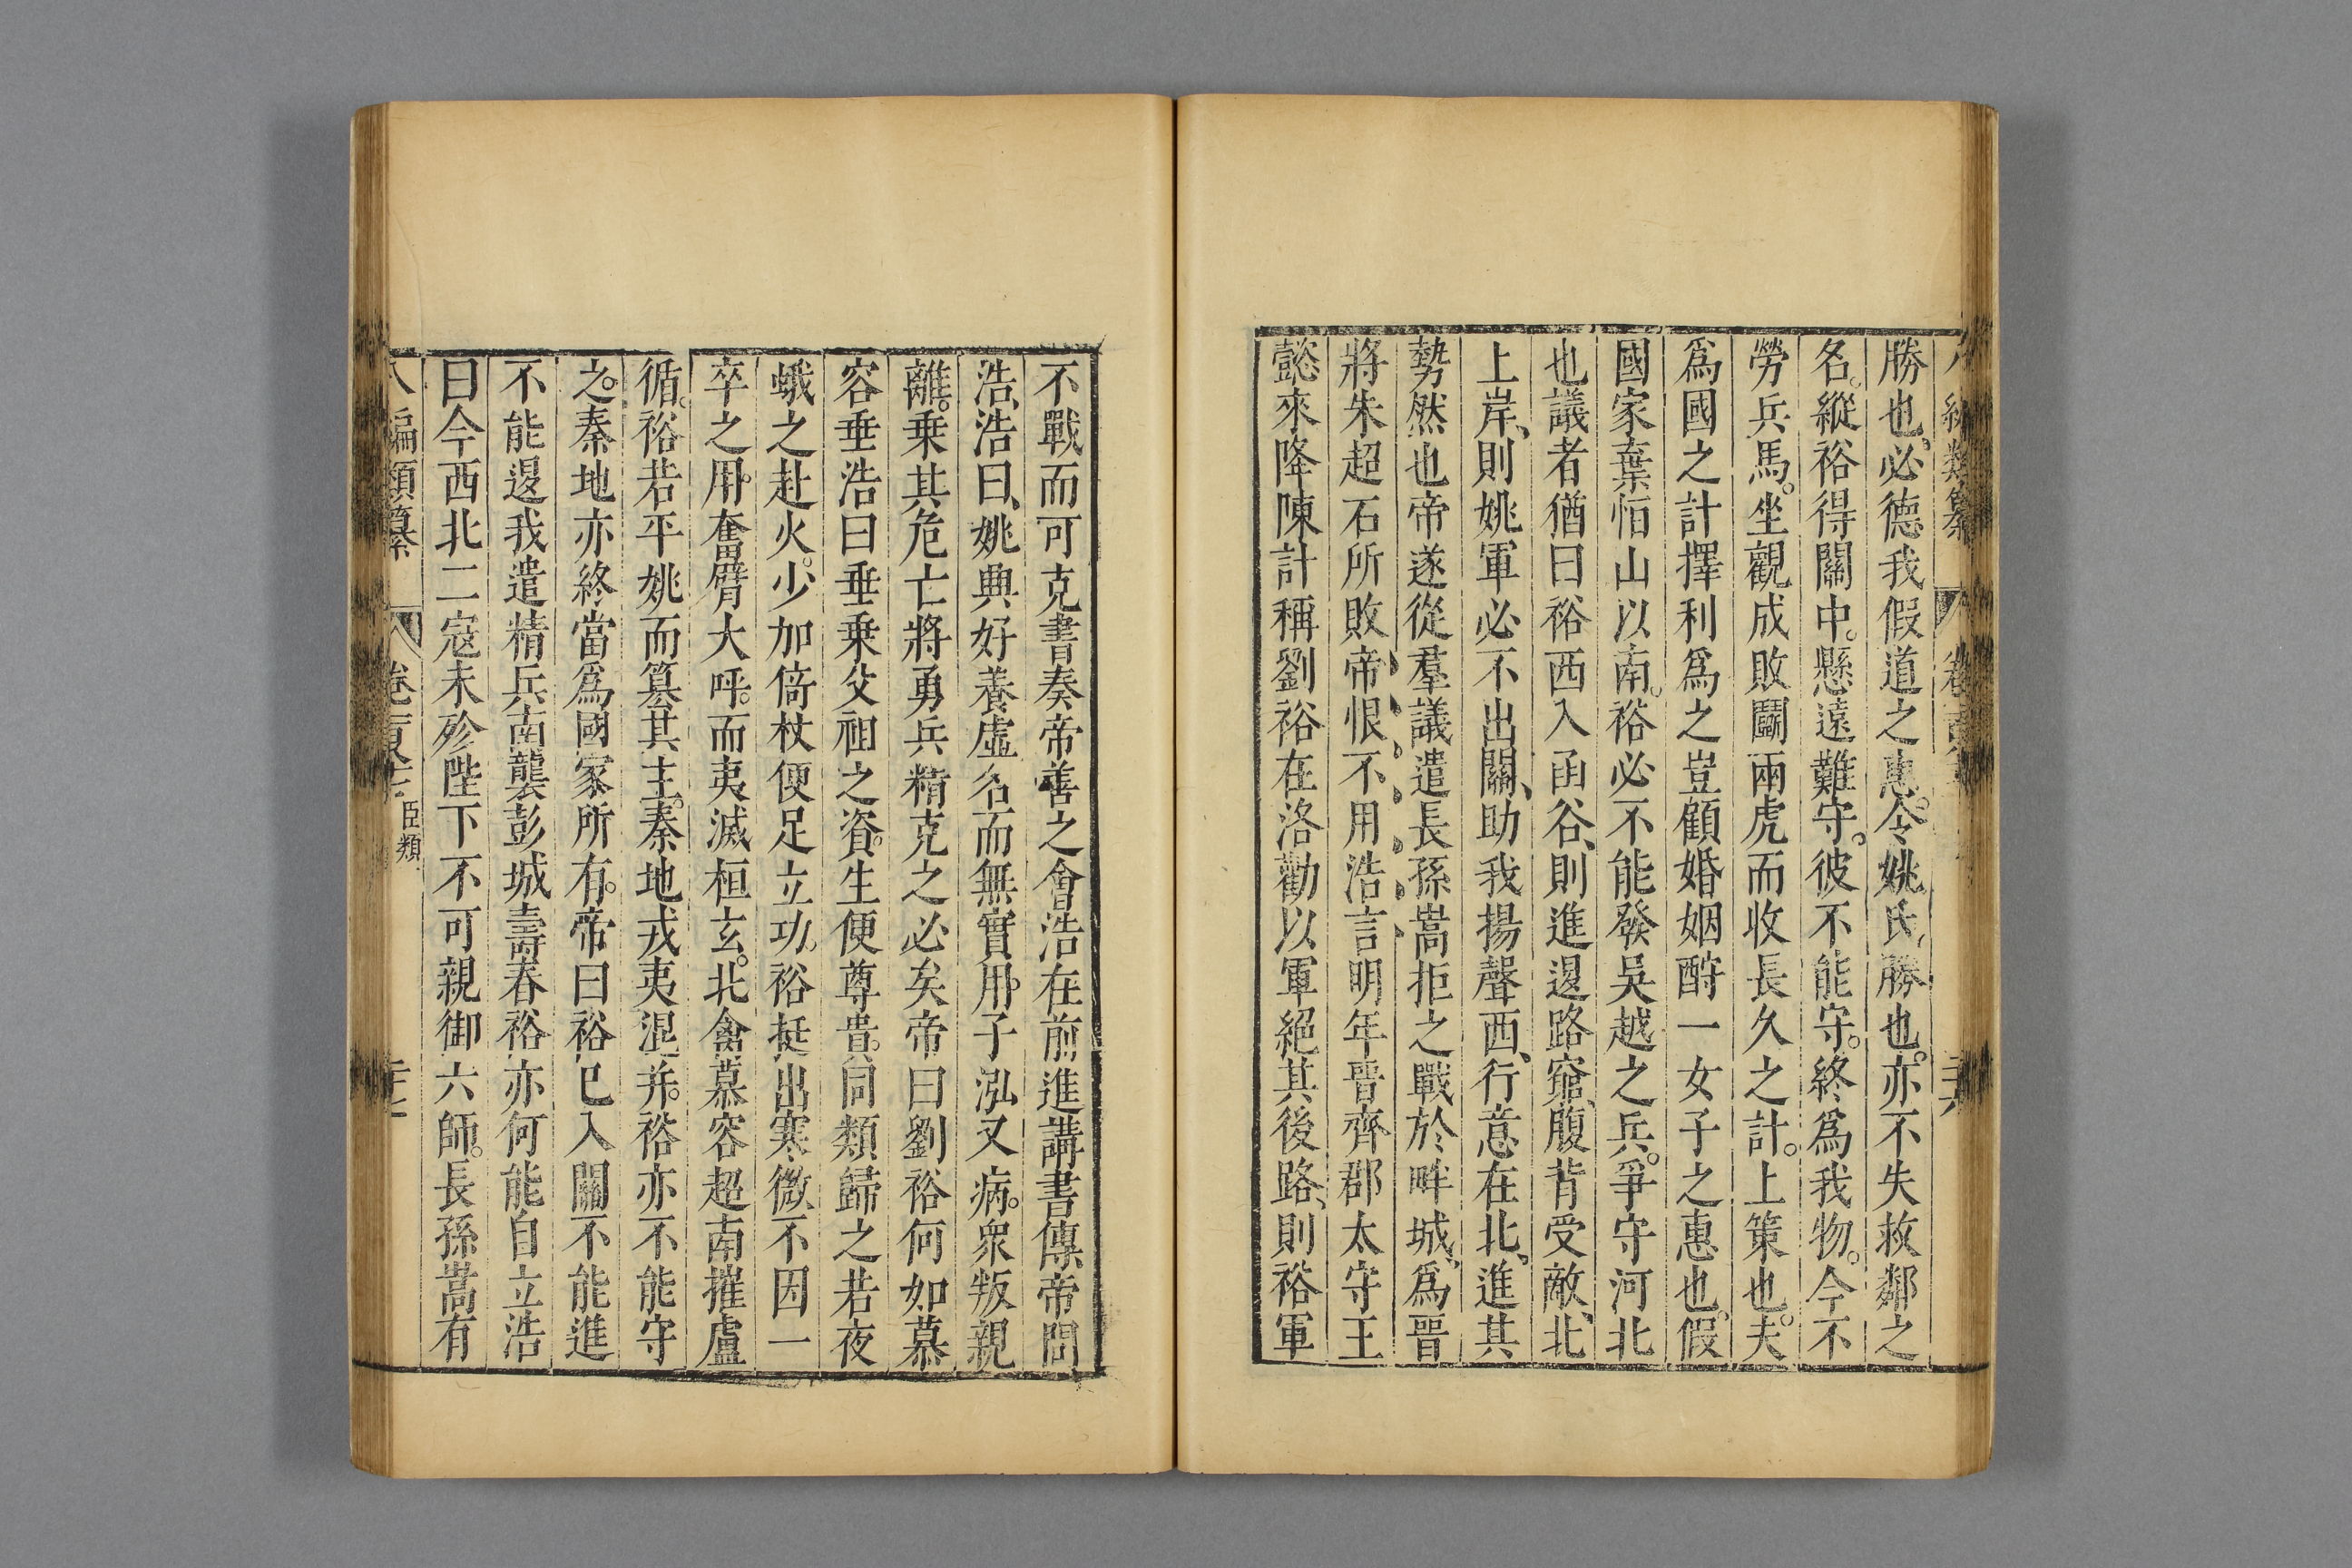 勝也必德我假道之惠令姚氏勝也亦不失救鄰之
名縱裕得關中懸遠難守彼不能守終爲我物今不
勞兵馬坐觀成敗鬭兩虎而收長久之計上策也夫
爲國之計擇利爲之豈顧婚姻酧一女子之惠也假
國家棄恒山以南裕必不能發吳越之兵爭守河北
也議者猶曰裕西入函谷則進退路窮腹背受敵北
上岸則姚軍必不出關助我揚聲西行意在北進其
勢然也帝遂從羣議遣長孫嵩拒之戰於畔城爲晉
將朱超石所敗帝恨不用浩言明年晉齊郡太守王
懿來降陳計稱劉裕在洛勸以軍絕其後路則裕軍
不戰而可克書奏帝善之會浩在前進講書傳帝問
浩浩曰姚興好養虛名而無實用子泓又病衆叛親
離乘其危亡將勇兵精克之必矣帝曰劉裕何如慕
容垂浩曰垂乘父祖之資生便尊貴同類歸之若夜
蛾之赴火少加倚杖便足立功裕挺出寒微不因一
卒之用奮臂大呼而夷滅桓玄北禽慕容超南摧盧
循裕若平姚而篡其主秦地戎夷混并裕亦不能守
之秦地亦終當爲國家所有帝曰裕已入關不能進
不能退我遣精兵南襲彭城壽春裕亦何能自立浩
曰今西北二寇未殄陛下不可親御六師長孫嵩有
八編類纂 卷 臣類